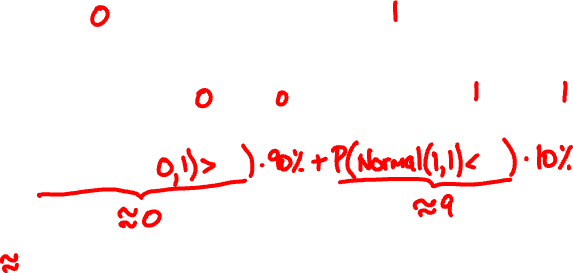 0 1
0 0 1 1
0,1)> )·90% + P(Normal(1,1)< )·10%
≈0 ≈9
≈